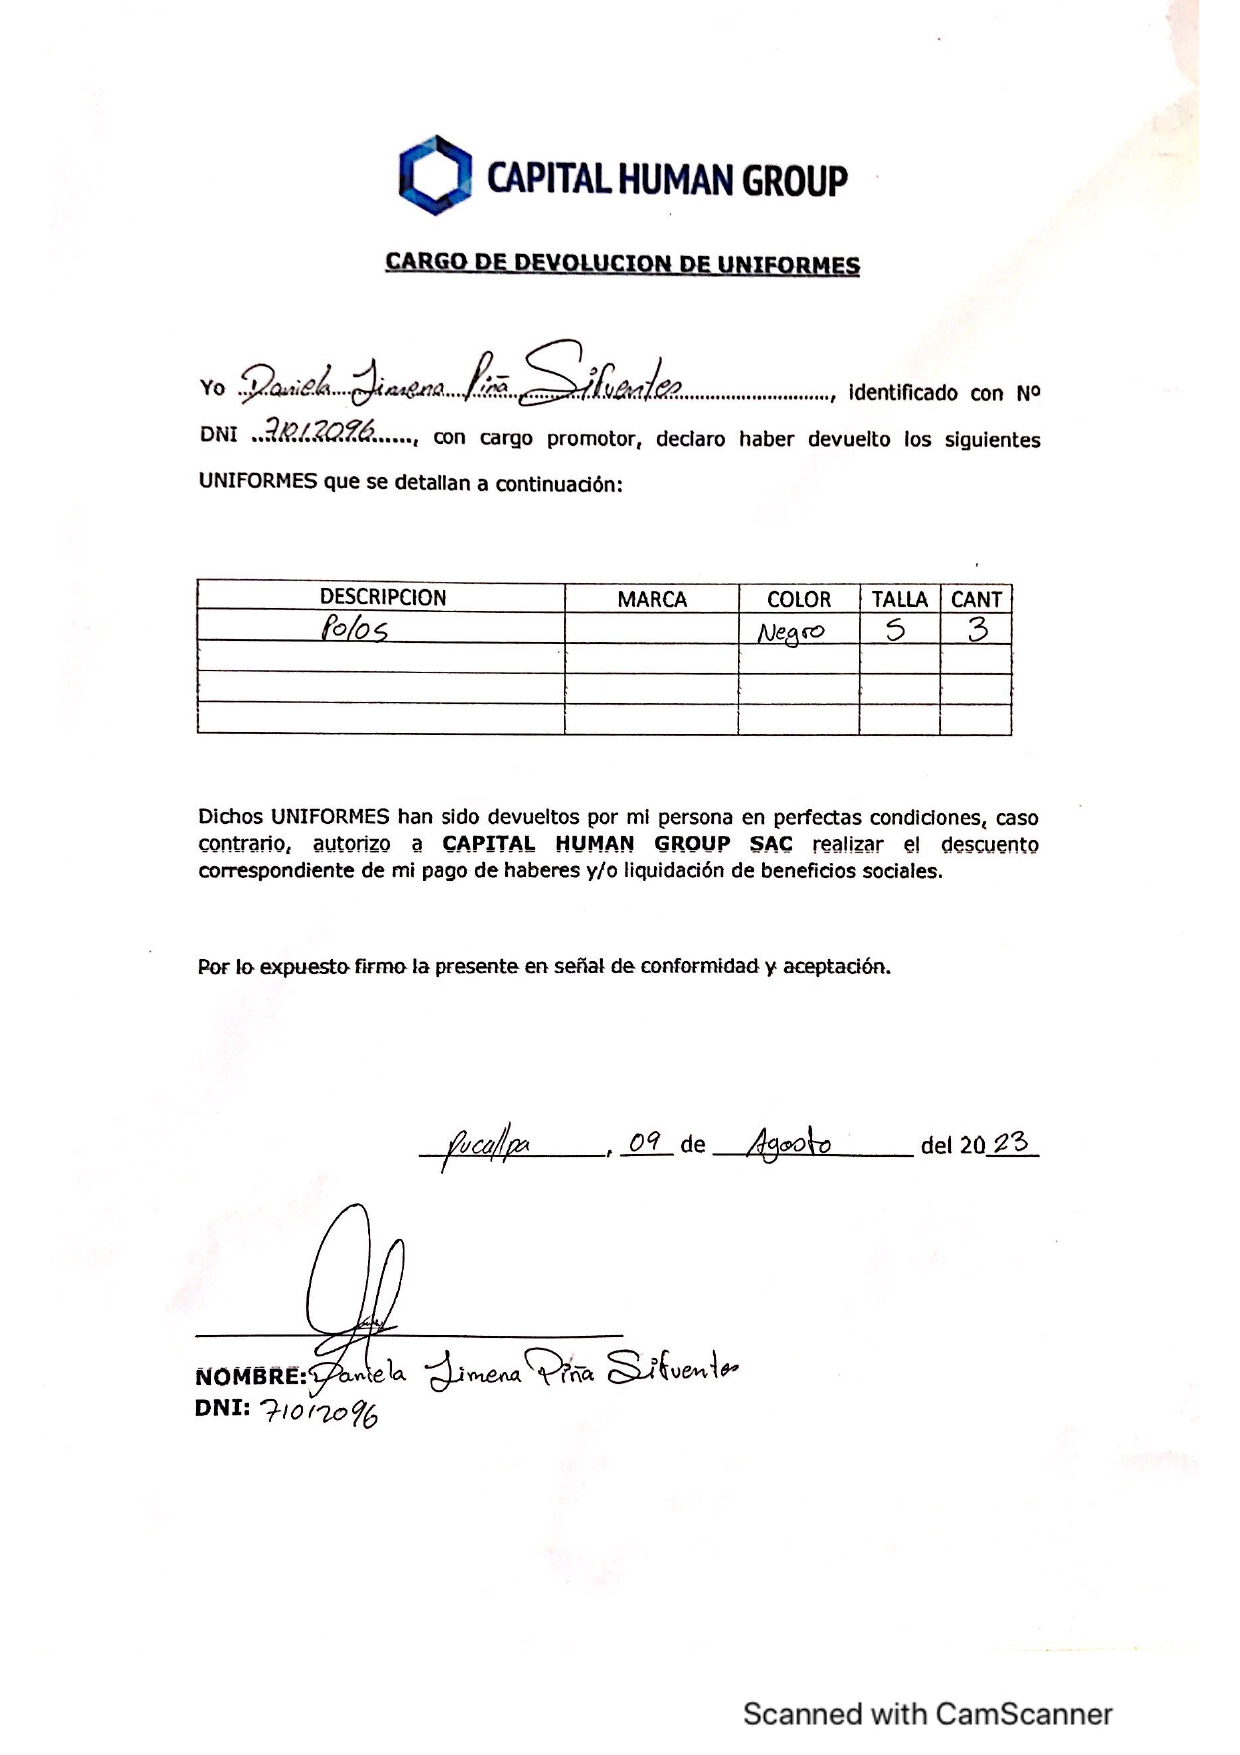 CAPITAL HUMAN GROUP
CARGO DE DEVOLUCION DE UNIFORMES
Yo Daniela Jimena Piña Sifuentes, identificado con Nº
DNI 71012096, con cargo promotor, declaro haber devuelto los siguientes
UNIFORMES que se detallan a continuación:
DESCRIPCION MARCA COLOR TALLA CANT
Polos Negro S 3
Dichos UNIFORMES han sido devueltos por mi persona en perfectas condiciones, caso
contrario, autorizo a CAPITAL HUMAN GROUP SAC realizar el descuento
correspondiente de mi pago de haberes y/o liquidación de beneficios sociales.
Por lo expuesto firmo la presente en señal de conformidad y aceptación.
Pucallpa, 09 de Agosto del 2023
NOMBRE: Daniela Jimena Piña Sifuentes
DNI: 71012096
Scanned with CamScanner